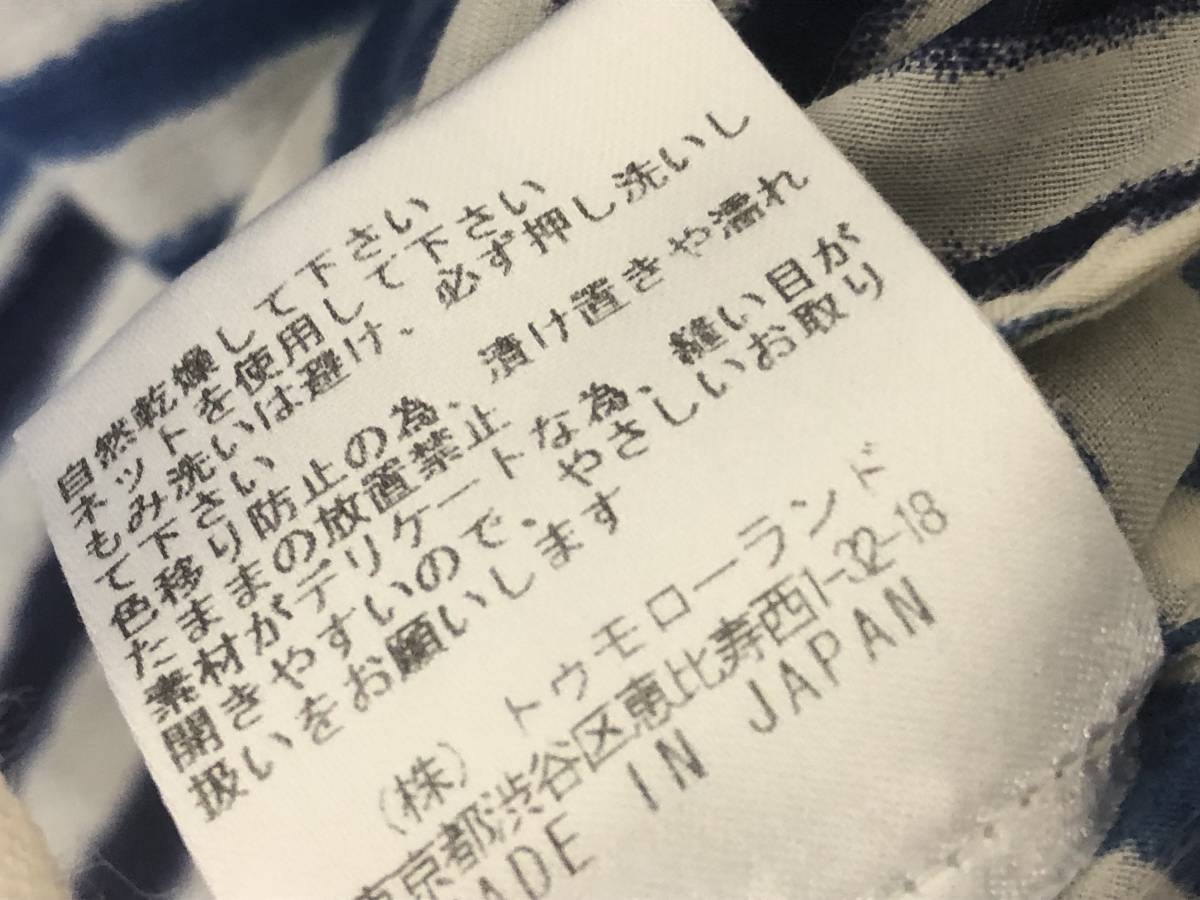 自然乾燥して下さい
ネットを使用して下さい
もみ洗いは避け、必ず押し洗いし
て下さい
色移り防止の為、漬け置きや濡れ
たままの放置禁止
素材がデリケートな為、縫い目が
開きやすいので、やさしいお取り
扱いをお願いします
(株)トウモローランド
東京都渋谷区恵比寿西1-32-18
MADE IN JAPAN